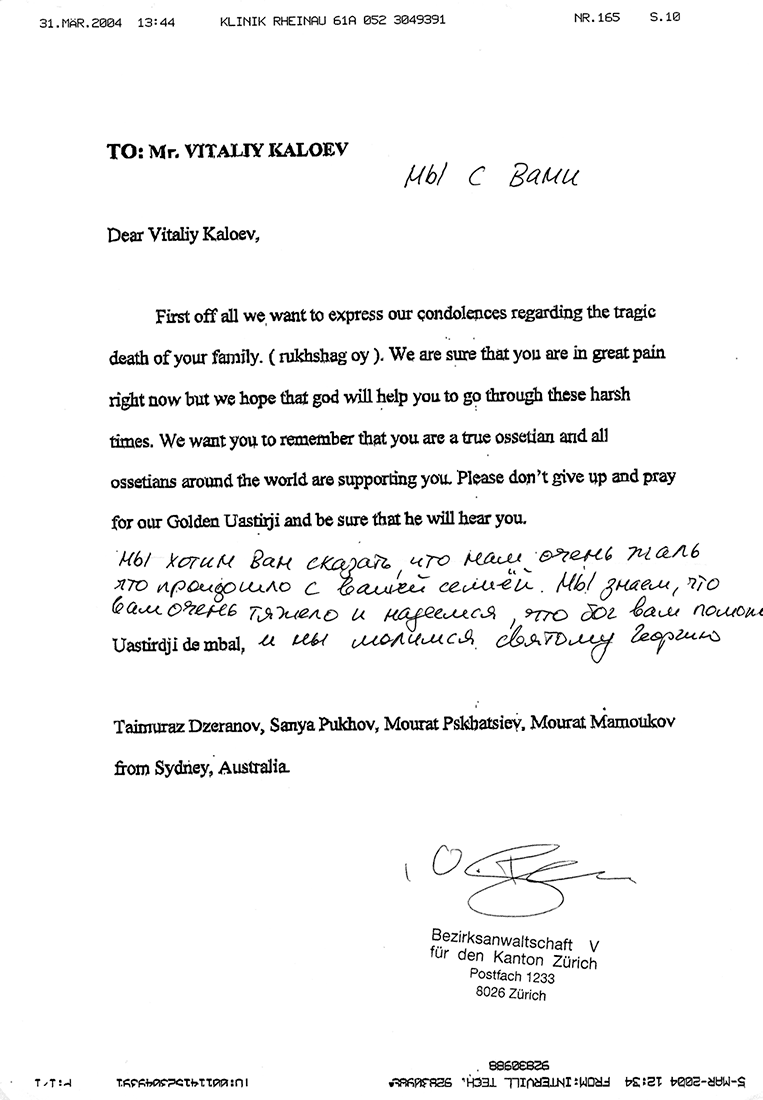 31.MÄR.2004 13:44 KLINIK RHEINAU 61A 052 3049391 NR.165 S.10
TO: Mr. VITALIY KALOEV
мы с Вами
Dear Vitaliy Kaloev,
First off all we want to express our condolences regarding the tragic
death of your family. ( rukhshag oy ). We are sure that you are in great pain
right now but we hope that god will help you to go through these harsh
times. We want you to remember that you are a true ossetian and all
ossetians around the world are supporting you. Please don't give up and pray
for our Golden Uastirji and be sure that he will hear you.
Мы хотим Вам сказать, что нам очень жаль
что произошло с вашей семьёй. Мы знаем, что
вам очень тяжело и надеемся, что бог вам помож
Uastirdji de mbal, и мы молимся святому Георгию
Taimuraz Dzeranov, Sanya Pukhov, Mourat Pskhatsiev, Mourat Mamoukov
from Sydney, Australia.
Bezirksanwaltschaft V
für den Kanton Zürich
Postfach 1233
8026 Zürich
92830988
5-MAR-2004 12:34 FROM:INTERVILL TECH. 92830988